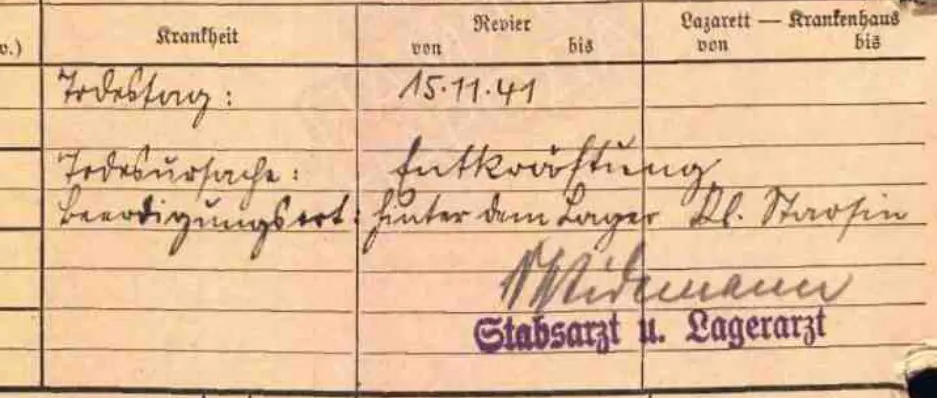 v.)
Krankheit
Revier
von bis
Lazarett — Krankenhaus
von bis
Todestag: 15.11.41
Todesursache: Entkräftung
Beerdigungsort: hinter dem Lager Kl. Starsin
Stabsarzt u. Lagerarzt